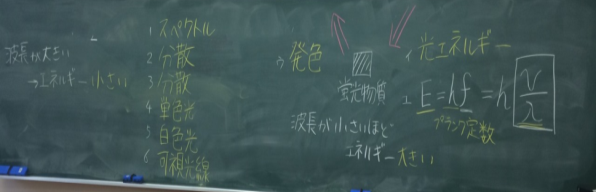 波長が大きい
→エネルギー小さい
1 スペクトル
2 分散
3 分散
4 単色光
5 白色光
6 可視光線
ウ 発色
蛍光物質
波長が小さいほど
エネルギー大きい
イ 光エネルギー
エ E=hf=h v/λ
プランク定数